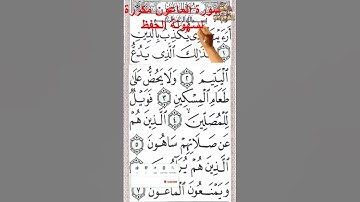 سورة الماعون مكررة
لسهولة الحفظ
يُكَذِّبُ بِالدِّينِ
فَذَٰلِكَ الَّذِي يَدُعُّ
الْيَتِيمَ ﴿٢﴾ وَلَا يَحُضُّ عَلَىٰ
طَعَامِ الْمِسْكِينِ ﴿٣﴾ فَوَيْلٌ
لِّلْمُصَلِّينَ ﴿٤﴾ الَّذِينَ هُمْ
عَن صَلَاتِهِمْ سَاهُونَ ﴿٥﴾
الَّذِينَ هُمْ
وَيَمْنَعُونَ الْمَاعُونَ ﴿٧﴾